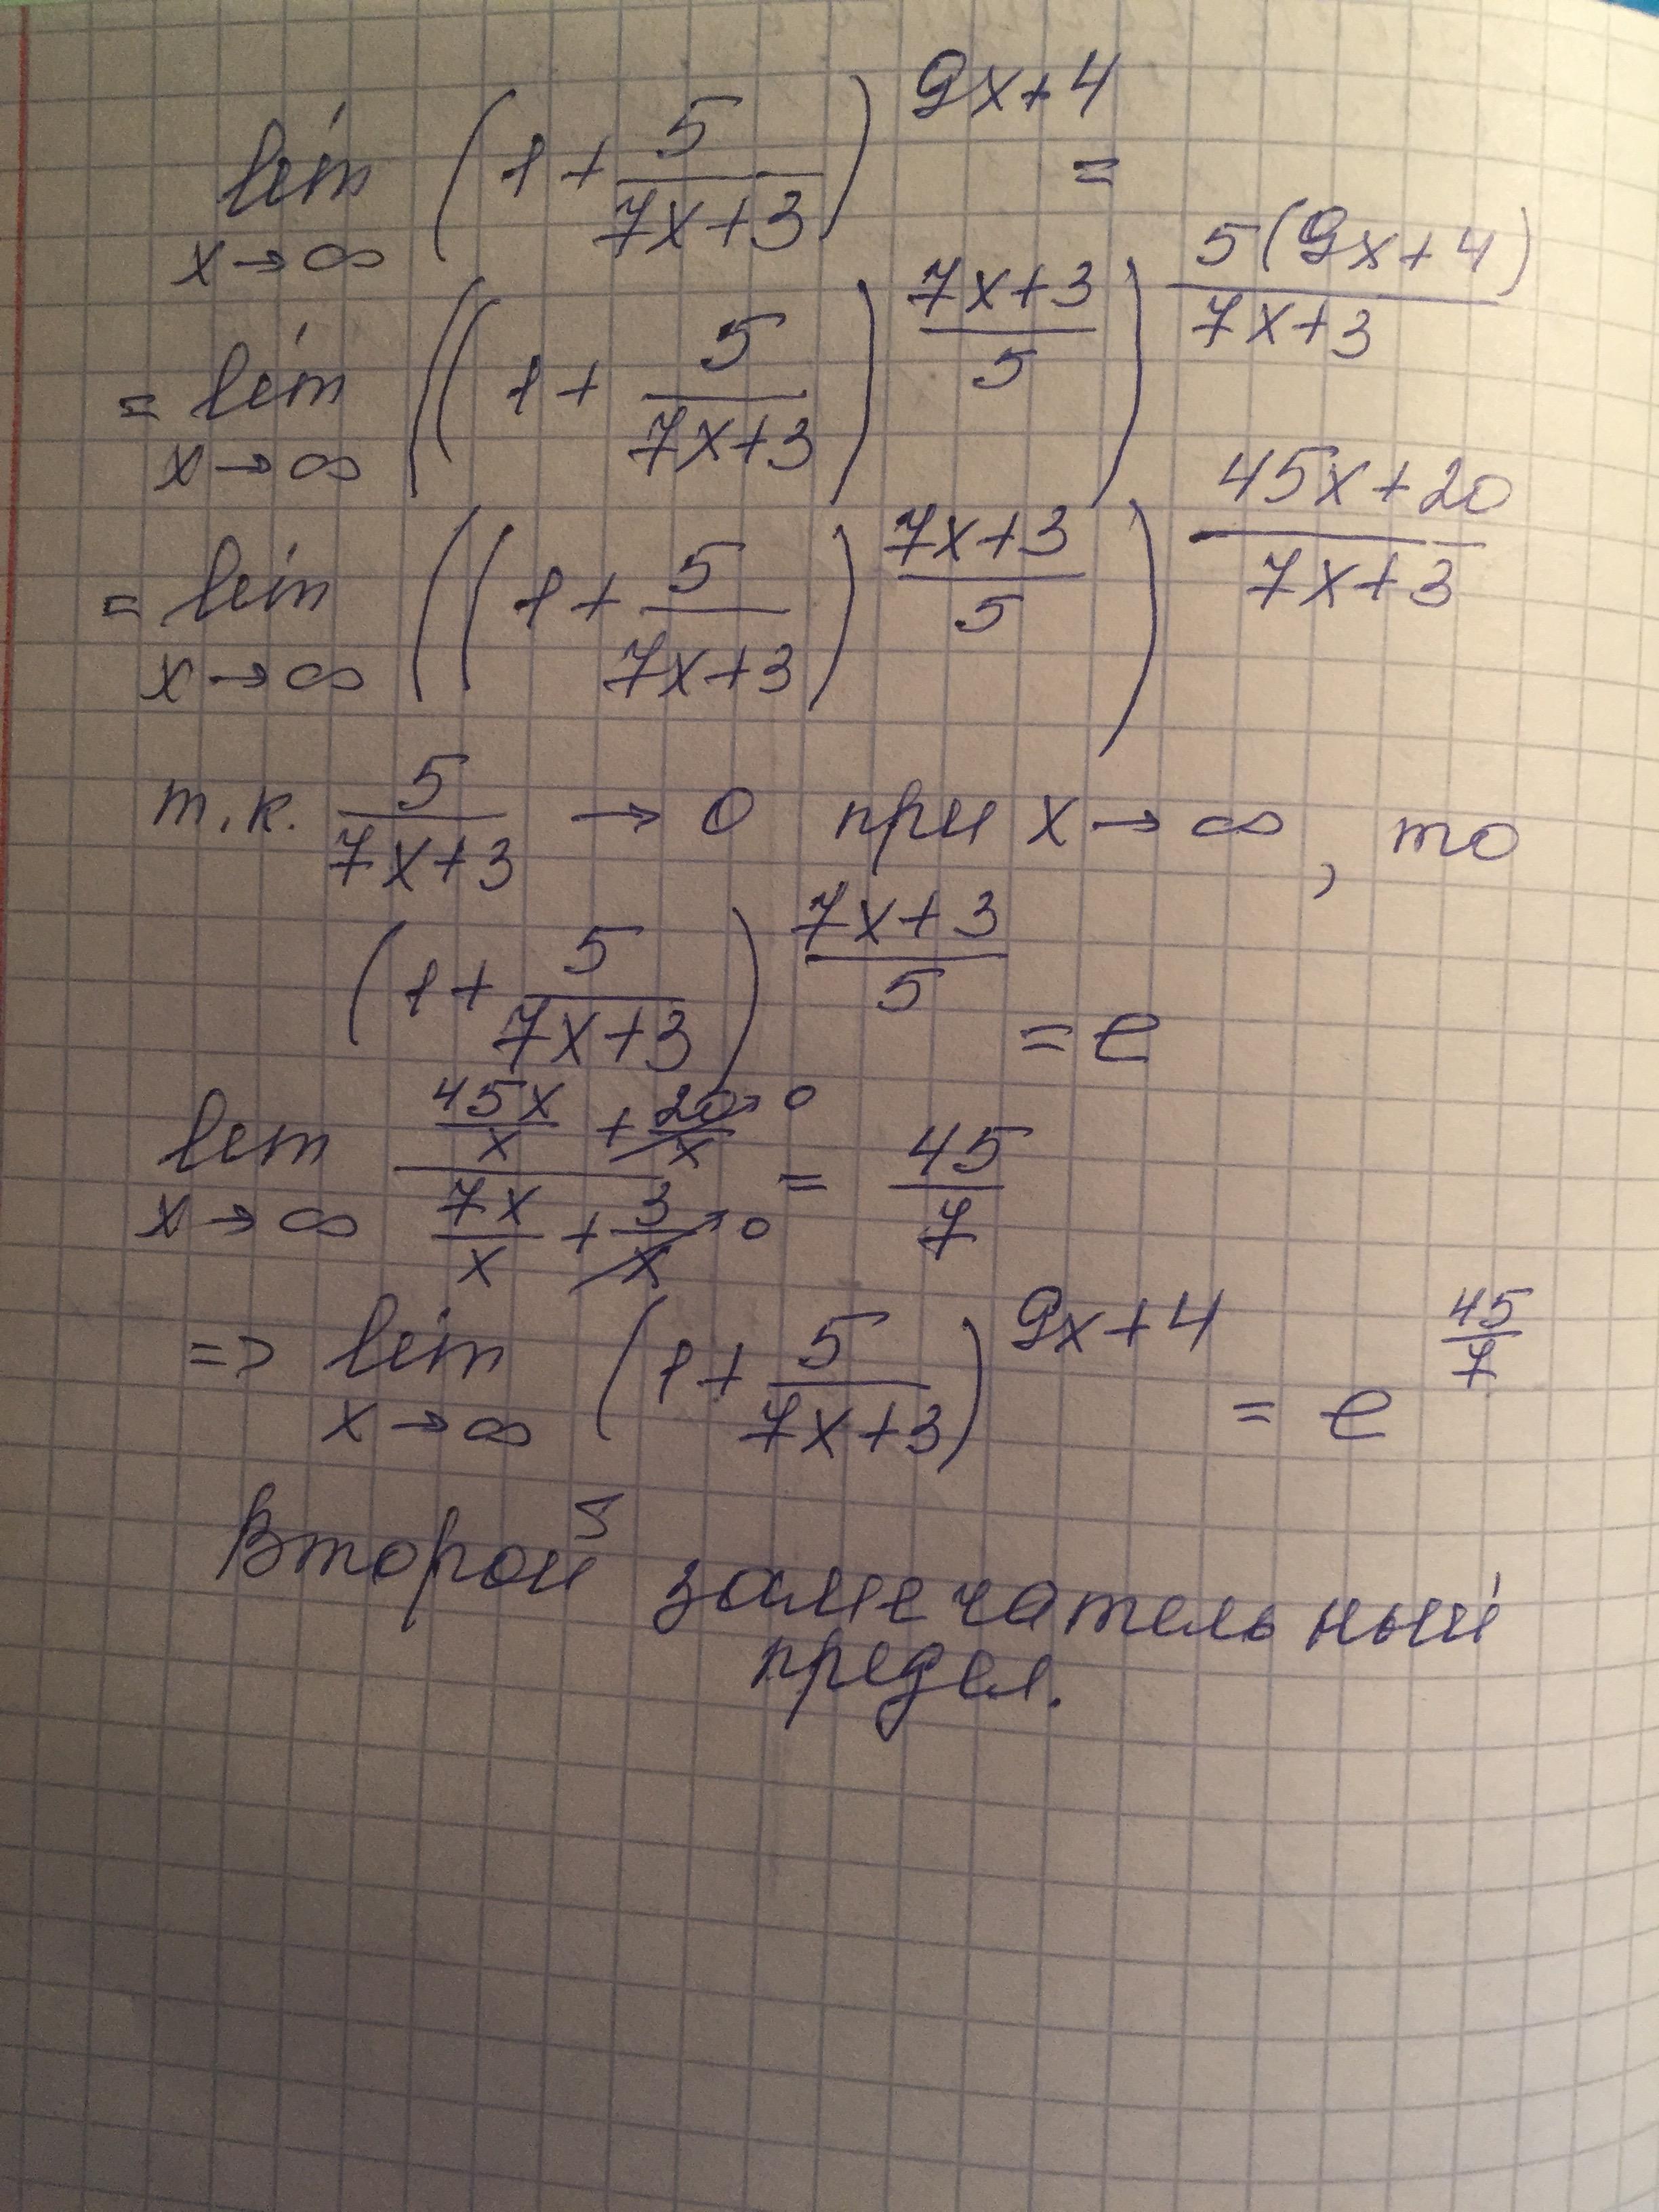 lim x→∞ (1 + 5/(7x+3))^(9x+4) =
= lim x→∞ ((1 + 5/(7x+3))^((7x+3)/5))^(5(9x+4)/(7x+3))
= lim x→∞ ((1 + 5/(7x+3))^((7x+3)/5))^((45x+20)/(7x+3))
т.к. 5/(7x+3) → 0 при x → ∞, то
(1 + 5/(7x+3))^((7x+3)/5) = e
lim x→∞ (45x/x + 20/x→0)/(7x/x + 3/x→0) = 45/7
=> lim x→∞ (1 + 5/(7x+3))^(9x+4) = e^(45/7)
Второй замечательный
предел.